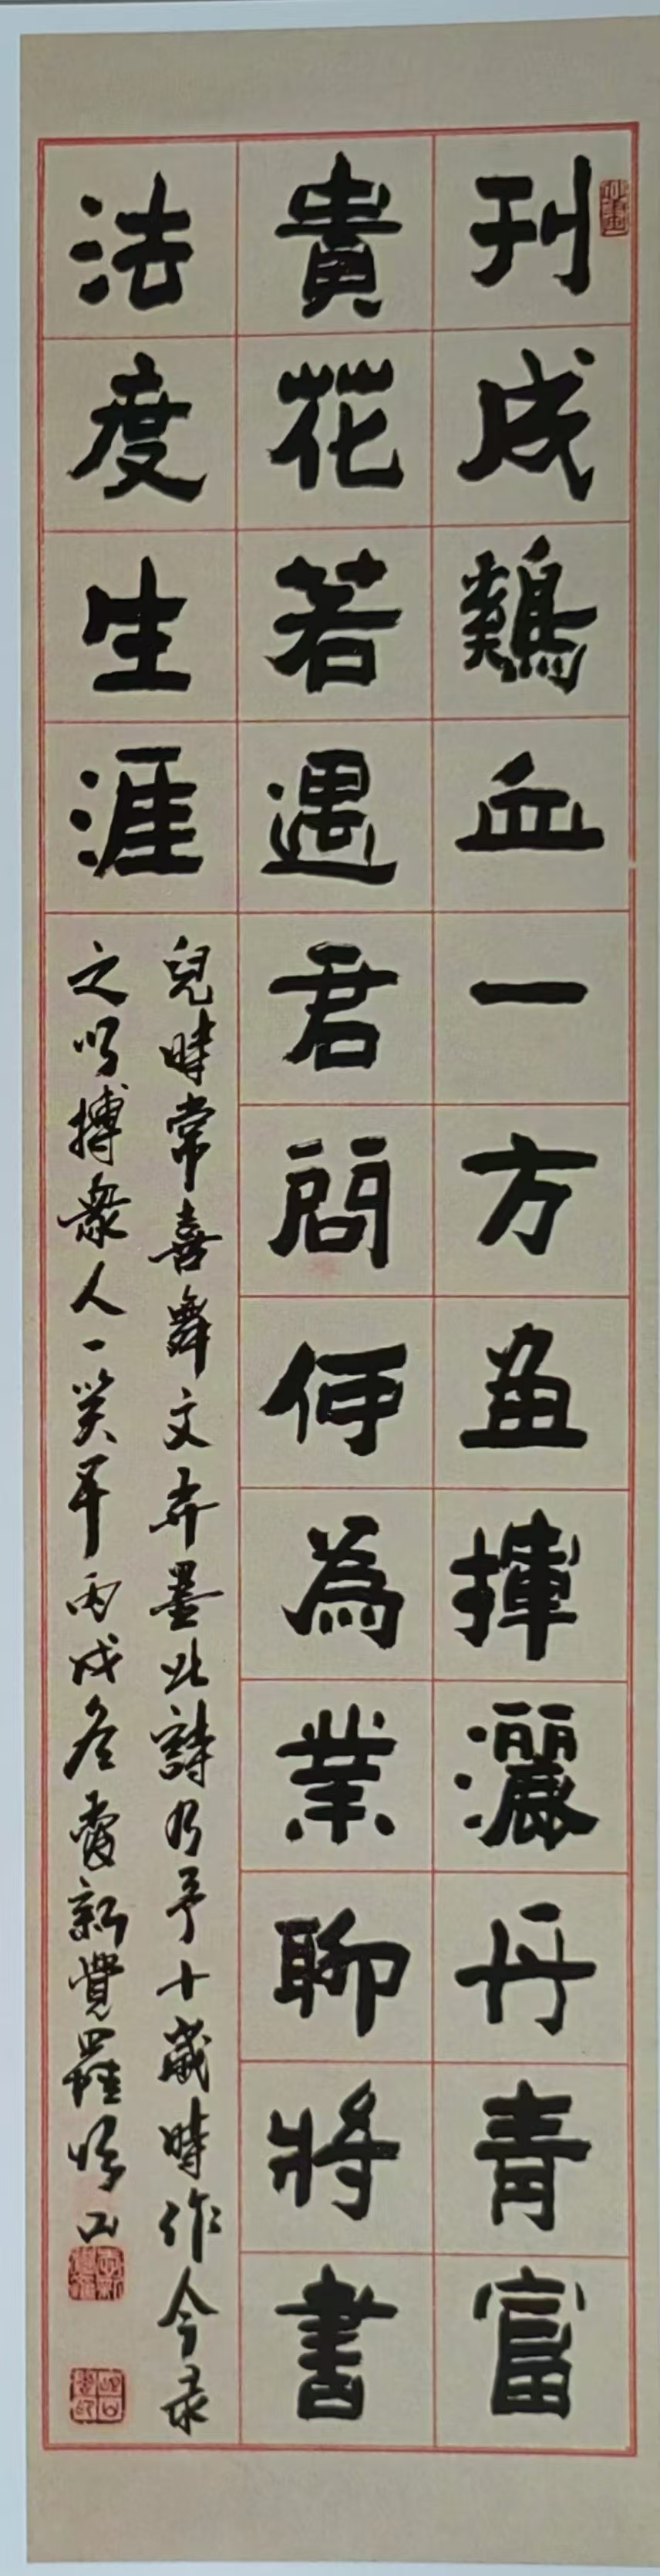 刊成鷄血一方盈揮灑丹青富
貴花若遇君問何為業聊將書
法度生涯
兒時常喜舞文弄墨此詩乃予十歲時作今录
之以搏衆人一笑耳丙戌冬愛新覺羅